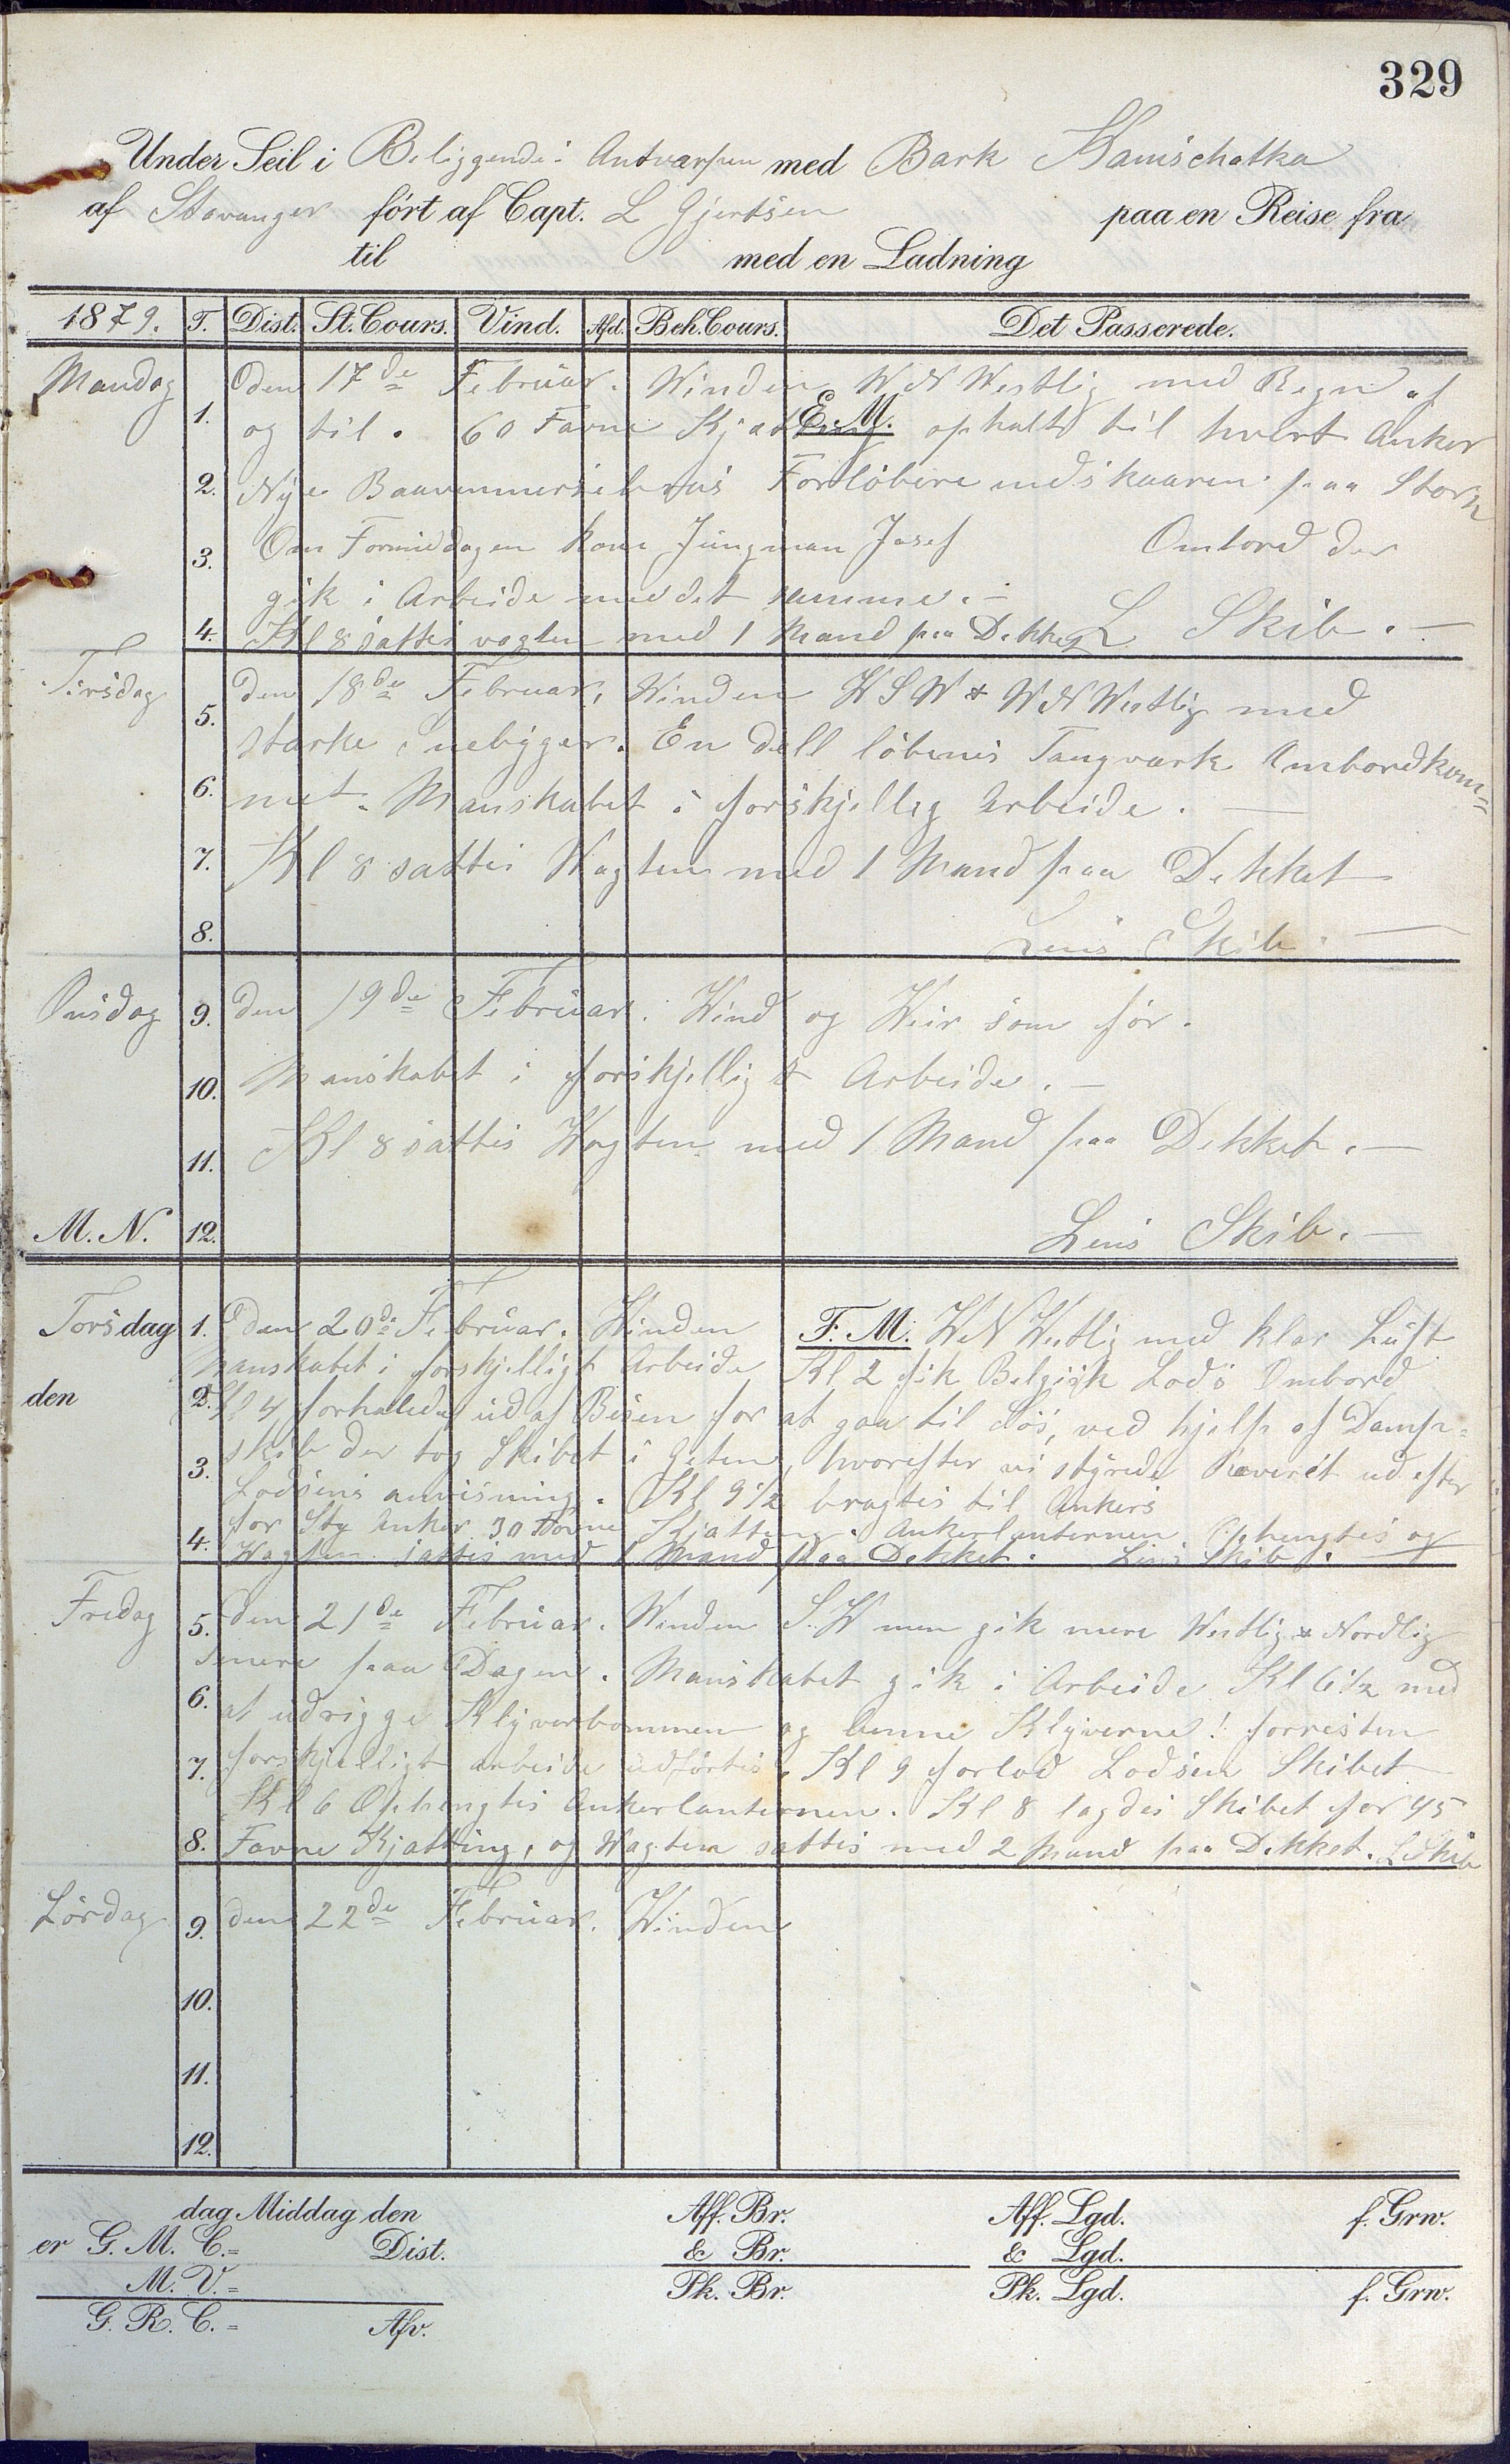 329
Under Seil i Beliggende i Antwarpen med Bark Kamschatka
af Stavanger ført af Capt. L Gjertsen paa en Reise fra
til med en Ladning
1879. T. Dist. St. Cours. Vind. Afd. Beh. Cours. Det Passerede.
Mandag den 17de Februar. Winden WNWestlig med Regn af
E. M.
1. og til. 60 Favne Kjætting ophalt til hvert Anker
2. Nye Forløbere indskaaren paa Storn
3. Om Formiddagen kom Jungman Josef Ombord der
gik i Arbeide med det samme. —
4. Kl 8 sattes vagten med 1 Mand paa Dekket L Skib. —
Tirsdag den 18de Februar, Winden WSW & WNWestlig med
5. starke Snebyger. En dell løbenes Tangvark Ombordkom=
6. met. Manskabet i forskjellig Arbeide. —
7. Kl 8 sattes Wagten med 1 Mand paa Dekket
8. Lens Skib. —
Onsdag 9. den 19de Februar. Wind og Weir som før.
10. Manskabet i forskjelligt Arbeide. —
11. Kl 8 sattes Wagten med 1 Mand paa Dekket. —
M. N. 12. Lens Skib. —
Torsdag 1. den 20de Februar. Winden F. M. WNWestlig med klar Luft.
Manskabet i forskjelligt Arbeide Kl 2 fik Belgisk Lods Ombord
den 2. Kl 4 forhaledes ud af Bisen for at gaa til Søs, ved hjelp af Damp=
3. skib der tog Skibet i , hvorefter vi styrede Reveret ud efter
Lodsens anvisning. Kl 9 1/2 bragtes til Ankers
for Stb Anker 30 Favne Kjætting. Ankerlanternen Ophengtes og
4. Wagten sattes med 1 Mand paa Dekket. Lens Skib. —
Fredag 5. den 21de Februar. Winden S.W men gik mere Westlig & Nordlig
senere paa Dagen. Manskabet gik i Arbeide Kl 6 1/2 med
6. at udrigge Klyverbommen og benne Klyverne! forresten
7. forskjelligt arbeide udførtes. Kl 9 forlod Lodsen Skibet
Kl 6 Ophengtes Ankerlanternen. Kl 8 lagdes Skibet for 45
8. Favne Kjætting, og Wagten sattes med 2 Mand paa Dekket. L Skib
Lørdag 9. den 22de Februar. Winden
10.
11.
12.
dag Middag den Aff. Br. Aff. Lgd. f. Grw.
er G. M. C.= Dist. & Br. & Lgd.
M. V.= Pk. Br. Pk. Lgd. f. Grw.
G. R. C.= Afv.